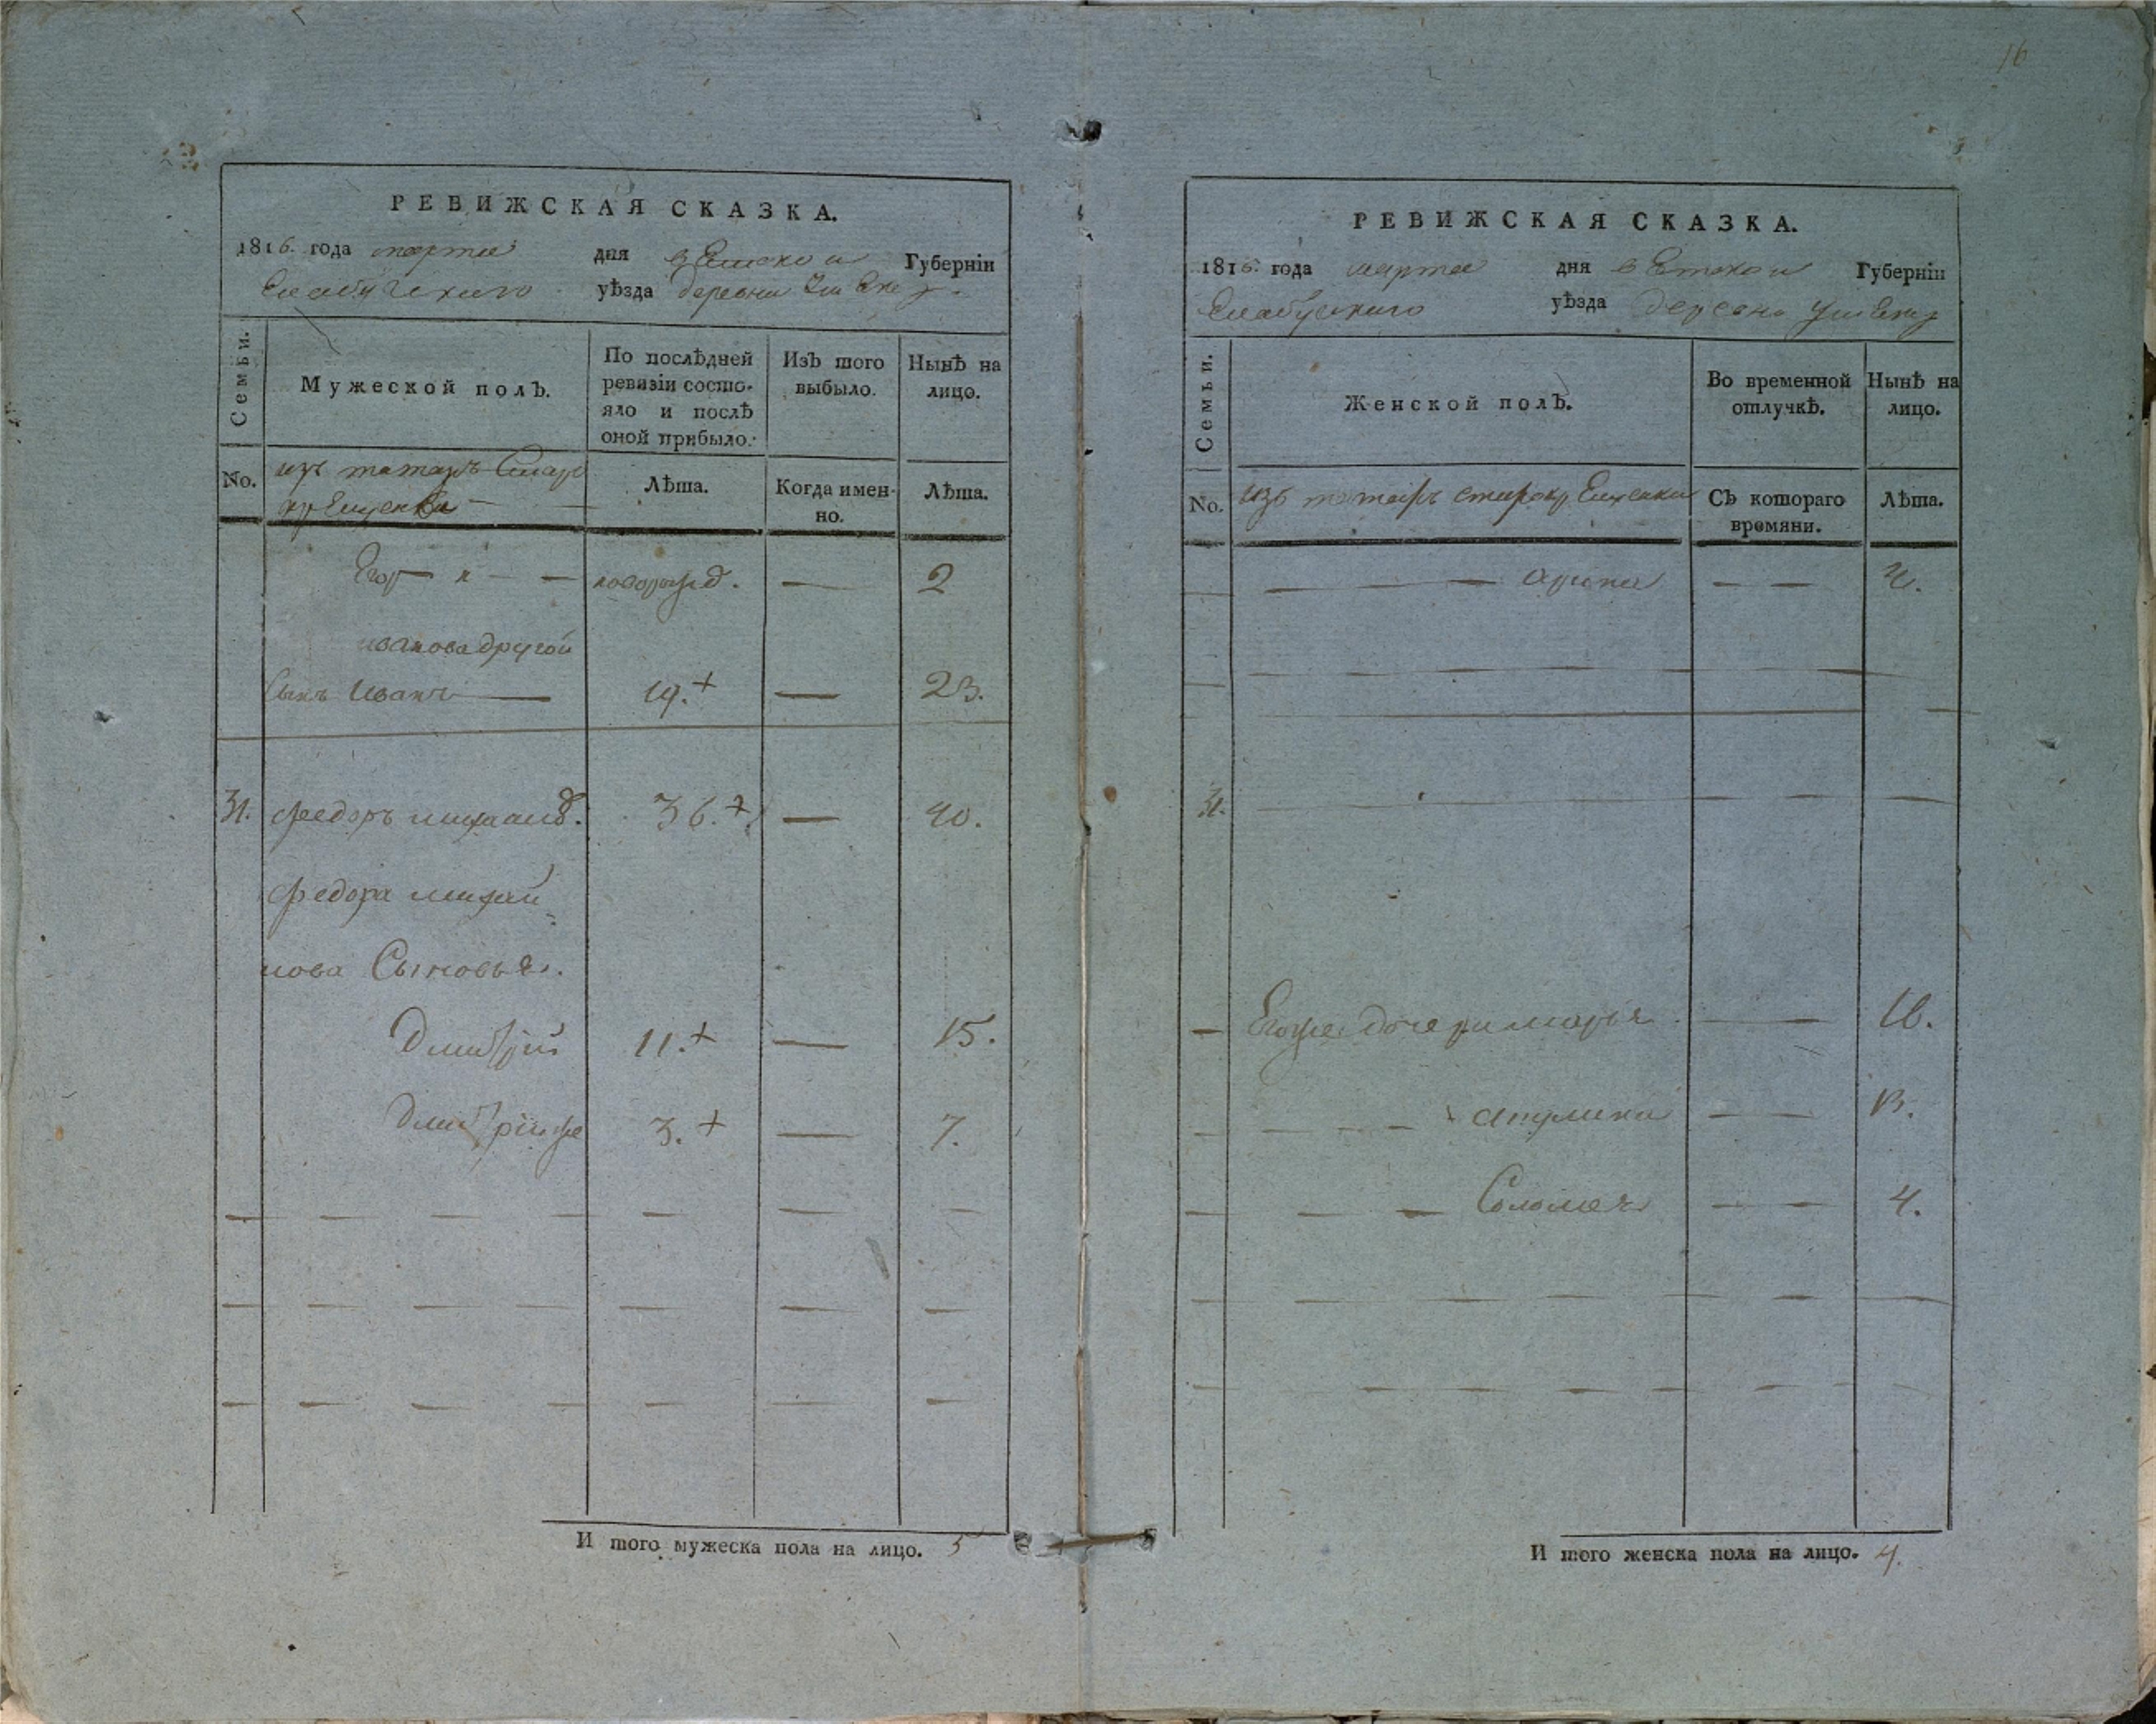 16
РЕВИЖСКАЯ СКАЗКА.
1816. года марта дня вятской Губерніи
Елабугскаго уѣзда деревни
Семьи.
Мужеской полъ.
По послѣдней ревизіи состо-
яло и послѣ
оной прибыло.
Изъ того
выбыло.
Нынѣ на
лицо.
No.
изъ татаръ Старо
крещенки
Лѣта.
Когда имен-
но.
Лѣта.
Егоръ — — новорожд. — 2
иванова другой
Сынъ Иванъ — 19.+ — 23.
31. Федоръ михаил. 36.+ — 40.
Федора михаи
лова Сыновья.
Дмитрий 11.+ — 15.
Дмитрий же 3.+ — 7.
И того мужеска пола на лицо. 5
РЕВИЖСКАЯ СКАЗКА.
1816. года марта дня вятской Губерніи
Елабугскаго уѣзда деревни
Семьи.
Женской полъ.
Во временной
отлучкѣ.
Нынѣ на
лицо.
No.
изъ татаръ старокрещенки
Съ котораго
времяни.
Лѣта.
— — арина — —
31.
— Егоже дочери марья — —
— — — — — —
— — — Соломея — — 4.
И того женска пола на лицо. 4.